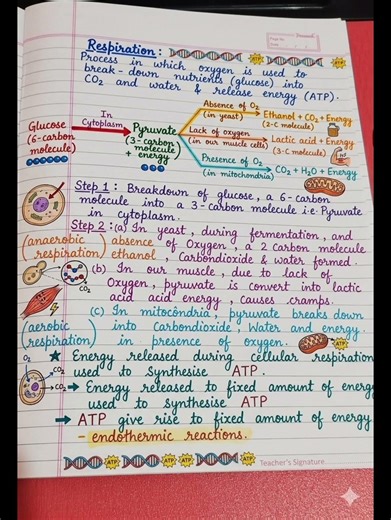 Page No.
Date
Respiration :
ATP
Process in which oxygen is used to
break-down nutrients (glucose) into
CO2 and water & release energy (ATP).
Absence of O2
(in yeast)
Ethanol + CO2 + Energy
(2-C molecule)
In
Cytoplasm
Glucose
(6-carbon
molecule)
Pyruvate
(3-carbon
molecule
+ energy
Lack of oxygen
(in our muscle cells)
Lactic acid + Energy
(3-C molecule)
Presence of O2
(in mitochondria)
CO2 + H2O + Energy
Step 1 : Breakdown of glucose, a 6-carbon
molecule into a 3-carbon molecule i.e. Pyruvate
in cytoplasm.
Step 2 : (a) In yeast, during fermentation, and
(anaerobic absence of Oxygen, a 2 Carbon molecule
respiration) ethanol, Carbondioxide & water formed.
(b) In our muscle, due to lack of
CO2
Oxygen, pyruvate is convert into lactic
acid acid energy, causes cramps.
(c) In mitocôndria, pyruvate breaks down
(aerobic into Carbondioxide, Water and energy.
respiration) in presence of oxygen.
ATP
O2
★ Energy released during cellular respiration
used to synthesise ATP.
CO2
→ Energy released to fixed amount of energy
used to synthesise ATP
→ ATP give rise to fixed amount of energy
- endothermic reactions.
ATP ATP ATP ATP
Teacher's Signature